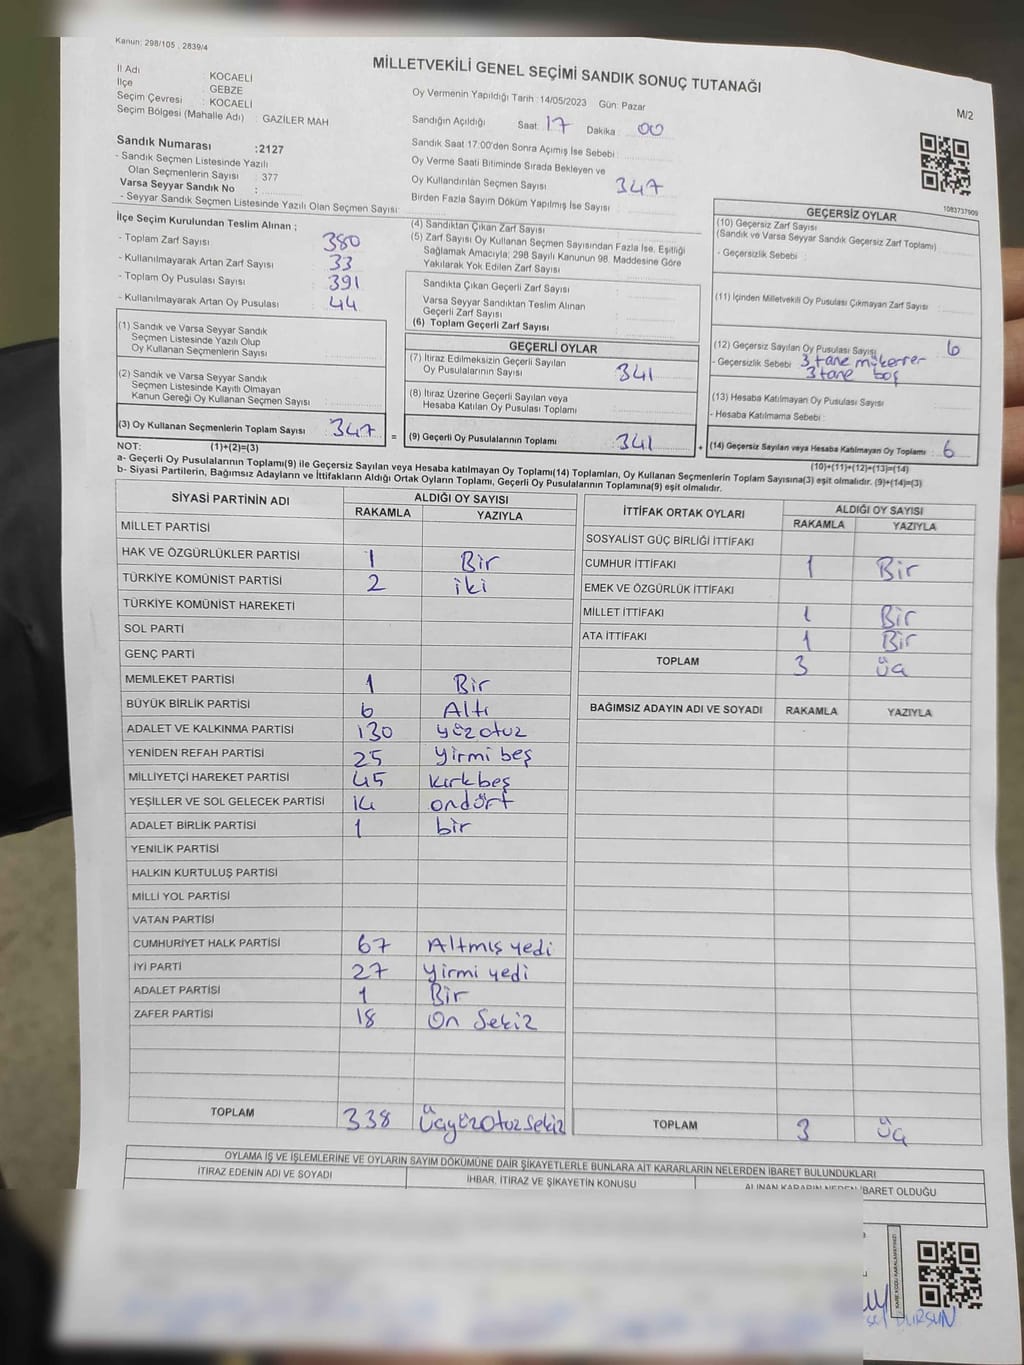 Kanun: 298/105 , 2839/4
MİLLETVEKİLİ GENEL SEÇİMİ SANDIK SONUÇ TUTANAĞI
M/2
İl Adı : KOCAELİ
İlçe : GEBZE
Seçim Çevresi : KOCAELİ
Seçim Bölgesi (Mahalle Adı) : GAZİLER MAH
Sandık Numarası :2127
- Sandık Seçmen Listesinde Yazılı
Olan Seçmenlerin Sayısı : 377
Varsa Seyyar Sandık No :
- Seyyar Sandık Seçmen Listesinde Yazılı Olan Seçmen Sayısı:
Oy Vermenin Yapıldığı Tarih :14/05/2023 Gün: Pazar
Sandığın Açıldığı Saat: 17 Dakika : 00
Sandık Saat 17:00'den Sonra Açımış İse Sebebi :
Oy Verme Saati Bitiminde Sırada Bekleyen ve
Oy Kullandırılan Seçmen Sayısı : 347
Birden Fazla Sayım Döküm Yapılmış İse Sayısı :
1083737909
İlçe Seçim Kurulundan Teslim Alınan ;
- Toplam Zarf Sayısı : 380
- Kullanılmayarak Artan Zarf Sayısı : 33
- Toplam Oy Pusulası Sayısı : 391
- Kullanılmayarak Artan Oy Pusulası : 44
(1) Sandık ve Varsa Seyyar Sandık
Seçmen Listesinde Yazılı Olup
Oy Kullanan Seçmenlerin Sayısı :
(2) Sandık ve Varsa Seyyar Sandık
Seçmen Listesinde Kayıtlı Olmayan
Kanun Gereği Oy Kullanan Seçmen Sayısı :
(3) Oy Kullanan Seçmenlerin Toplam Sayısı : 347 =
(1)+(2)=(3)
(4) Sandıktan Çıkan Zarf Sayısı :
(5) Zarf Sayısı Oy Kullanan Seçmen Sayısından Fazla İse, Eşitliği
Sağlamak Amacıyla; 298 Sayılı Kanunun 98. Maddesine Göre
Yakılarak Yok Edilen Zarf Sayısı :
Sandıkta Çıkan Geçerli Zarf Sayısı :
Varsa Seyyar Sandıktan Teslim Alınan
Geçerli Zarf Sayısı :
(6) Toplam Geçerli Zarf Sayısı :
GEÇERLİ OYLAR
(7) İtiraz Edilmeksizin Geçerli Sayılan
Oy Pusulalarının Sayısı : 341
(8) İtiraz Üzerine Geçerli Sayılan veya
Hesaba Katılan Oy Pusulası Toplamı :
(9) Geçerli Oy Pusulalarının Toplamı : 341 +
GEÇERSİZ OYLAR
(10) Geçersiz Zarf Sayısı
(Sandık ve Varsa Seyyar Sandık Geçersiz Zarf Toplamı) :
- Geçersizlik Sebebi :
(11) İçinden Milletvekili Oy Pusulası Çıkmayan Zarf Sayısı :
(12) Geçersiz Sayılan Oy Pusulası Sayısı : 6
- Geçersizlik Sebebi : 3 tane mükerrer
3 tane boş
(13) Hesaba Katılmayan Oy Pusulası Sayısı :
- Hesaba Katılmama Sebebi :
(14) Geçersiz Sayılan veya Hesaba Katılmayan Oy Toplamı : 6
(10)+(11)+(12)+(13)=(14)
NOT:
a- Geçerli Oy Pusulalarının Toplamı(9) ile Geçersiz Sayılan veya Hesaba katılmayan Oy Toplamı(14) Toplamları, Oy Kullanan Seçmenlerin Toplam Sayısına(3) eşit olmalıdır. (9)+(14)=(3)
b- Siyasi Partilerin, Bağımsız Adayların ve İttifakların Aldığı Ortak Oyların Toplamı, Geçerli Oy Pusulalarının Toplamına(9) eşit olmalıdır.
SİYASİ PARTİNİN ADI ALDIĞI OY SAYISI
RAKAMLA YAZIYLA
MİLLET PARTİSİ
HAK VE ÖZGÜRLÜKLER PARTİSİ 1 Bir
TÜRKİYE KOMÜNİST PARTİSİ 2 iki
TÜRKİYE KOMÜNİST HAREKETİ
SOL PARTİ
GENÇ PARTİ
MEMLEKET PARTİSİ 1 Bir
BÜYÜK BİRLİK PARTİSİ 6 Altı
ADALET VE KALKINMA PARTİSİ 130 yüzotuz
YENİDEN REFAH PARTİSİ 25 yirmi beş
MİLLİYETÇİ HAREKET PARTİSİ 45 kırkbeş
YEŞİLLER VE SOL GELECEK PARTİSİ 14 ondört
ADALET BİRLİK PARTİSİ 1 bir
YENİLİK PARTİSİ
HALKIN KURTULUŞ PARTİSİ
MİLLİ YOL PARTİSİ
VATAN PARTİSİ
CUMHURİYET HALK PARTİSİ 67 Altmış yedi
İYİ PARTİ 27 yirmi yedi
ADALET PARTİSİ 1 Bir
ZAFER PARTİSİ 18 On Sekiz
TOPLAM 338 üçyüzotuzsekiz
İTTİFAK ORTAK OYLARI ALDIĞI OY SAYISI
RAKAMLA YAZIYLA
SOSYALİST GÜÇ BİRLİĞİ İTTİFAKI
CUMHUR İTTİFAKI 1 Bir
EMEK VE ÖZGÜRLÜK İTTİFAKI
MİLLET İTTİFAKI 1 Bir
ATA İTTİFAKI 1 Bir
TOPLAM 3 üç
BAĞIMSIZ ADAYIN ADI VE SOYADI RAKAMLA YAZIYLA
TOPLAM 3 üç
OYLAMA İŞ VE İŞLEMLERİNE VE OYLARIN SAYIM DÖKÜMÜNE DAİR ŞİKAYETLERLE BUNLARA AİT KARARLARIN NELERDEN İBARET BULUNDUKLARI
İTİRAZ EDENİN ADI VE SOYADI İHBAR, İTİRAZ VE ŞİKAYETİN KONUSU ALINAN KARARIN NEDEN İBARET OLDUĞU
DURSUN